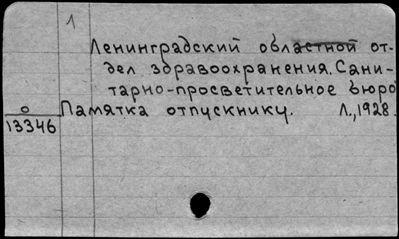 1
Ленинградский областной от-
дел здравоохранения. Сани-
тарно-просветительное бюро
Памятка отпускнику. Л., 1928.
0
13346